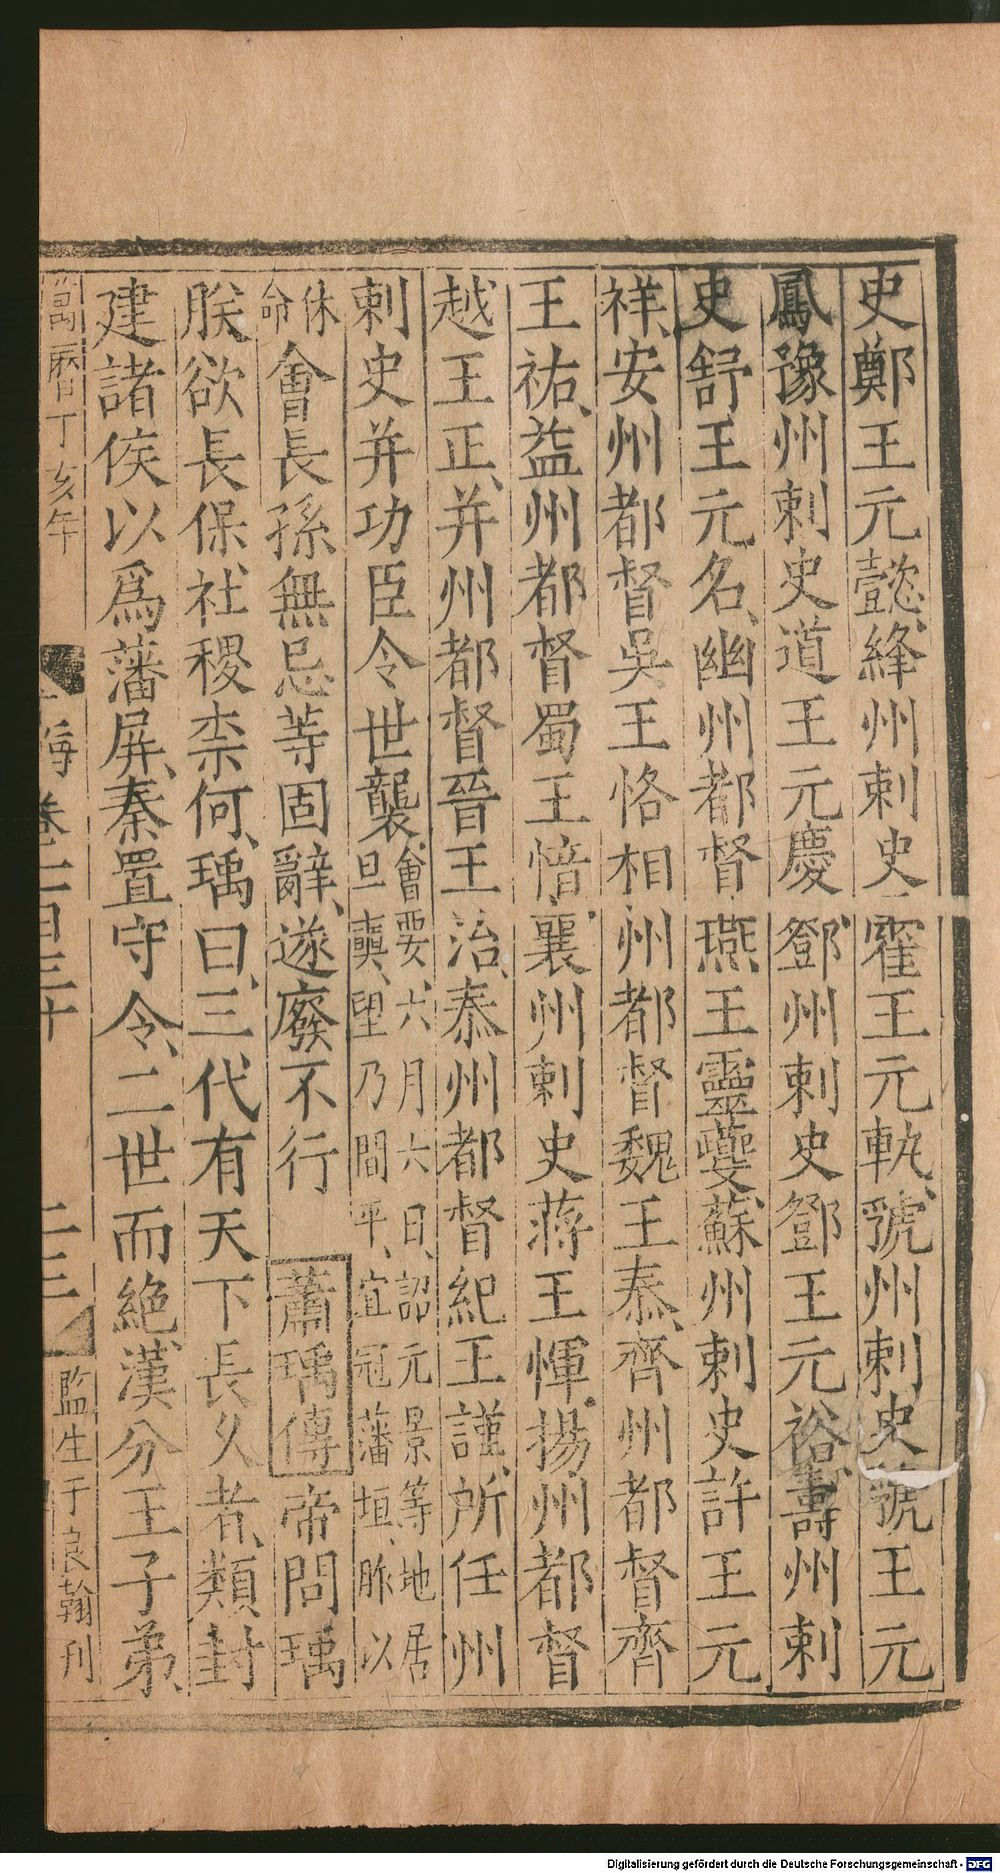 史鄭王元懿、絳州刺史霍王元軌、虢州刺史虢王元
鳳豫州刺史道王元慶鄧州刺史鄧王元裕、壽州刺
史舒王元名、幽州都督燕王靈夔、蘇州刺史許王元
祥、安州都督吳王恪相州都督魏王泰、齊州都督齊
王祐、益州都督蜀王愔、襄州刺史蔣王惲、揚州都督
越王正、并州都督晉王治、秦州都督紀王謹、所任州
刺史并功臣令世襲
會要、六月六日、詔元景等地居
旦奭、望乃間平、宜冠藩垣、胙以
休
命
會長孫無忌等固辭、遂廢不行 蕭瑀傳帝問瑀
朕欲長保社稷柰何、瑀曰、三代有天下長久者、類封
建諸侯以爲藩屏、秦置守令、二世而絶、漢分王子弟、
萬曆丁亥年 海 卷二百三十 二三 監生于良翰刊
Digitalisierung gefördert durch die Deutsche Forschungsgemeinschaft - DFG